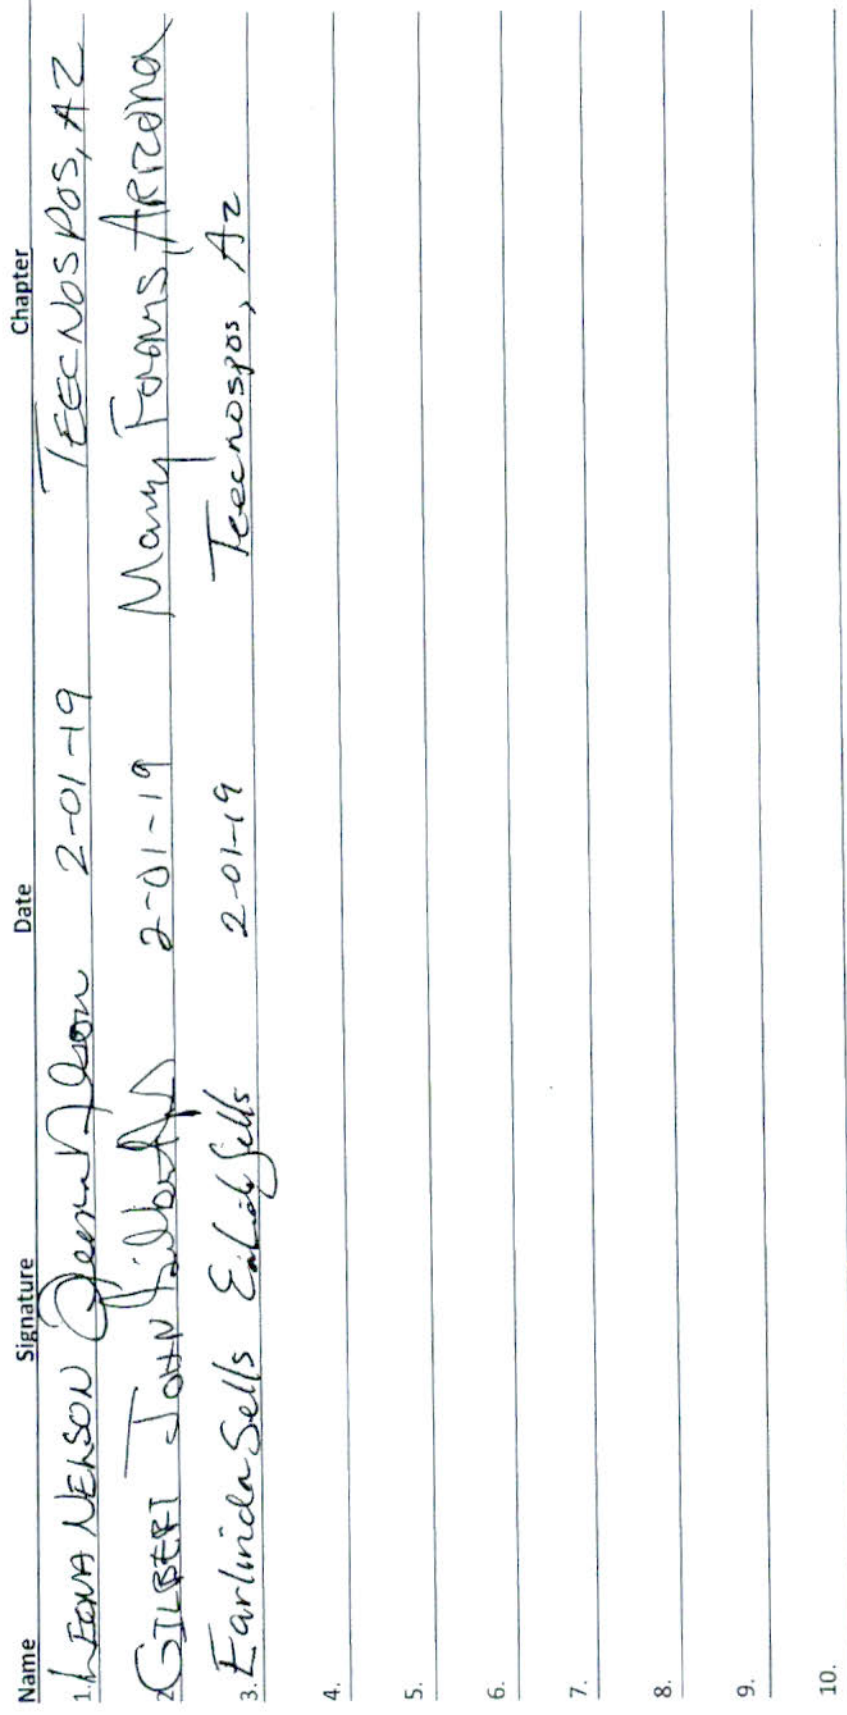 Name Signature Date Chapter
1. LEONA NELSON Leona Nelson 2-01-19 TEECNOSPOS, AZ
2. GILBERT JOHN Gilbert 2-01-19 Many Farms, ARIZONA
3. Earlinda Sells 2-01-19 Teecnospos, Az
4.
5.
6.
7.
8.
9.
10.